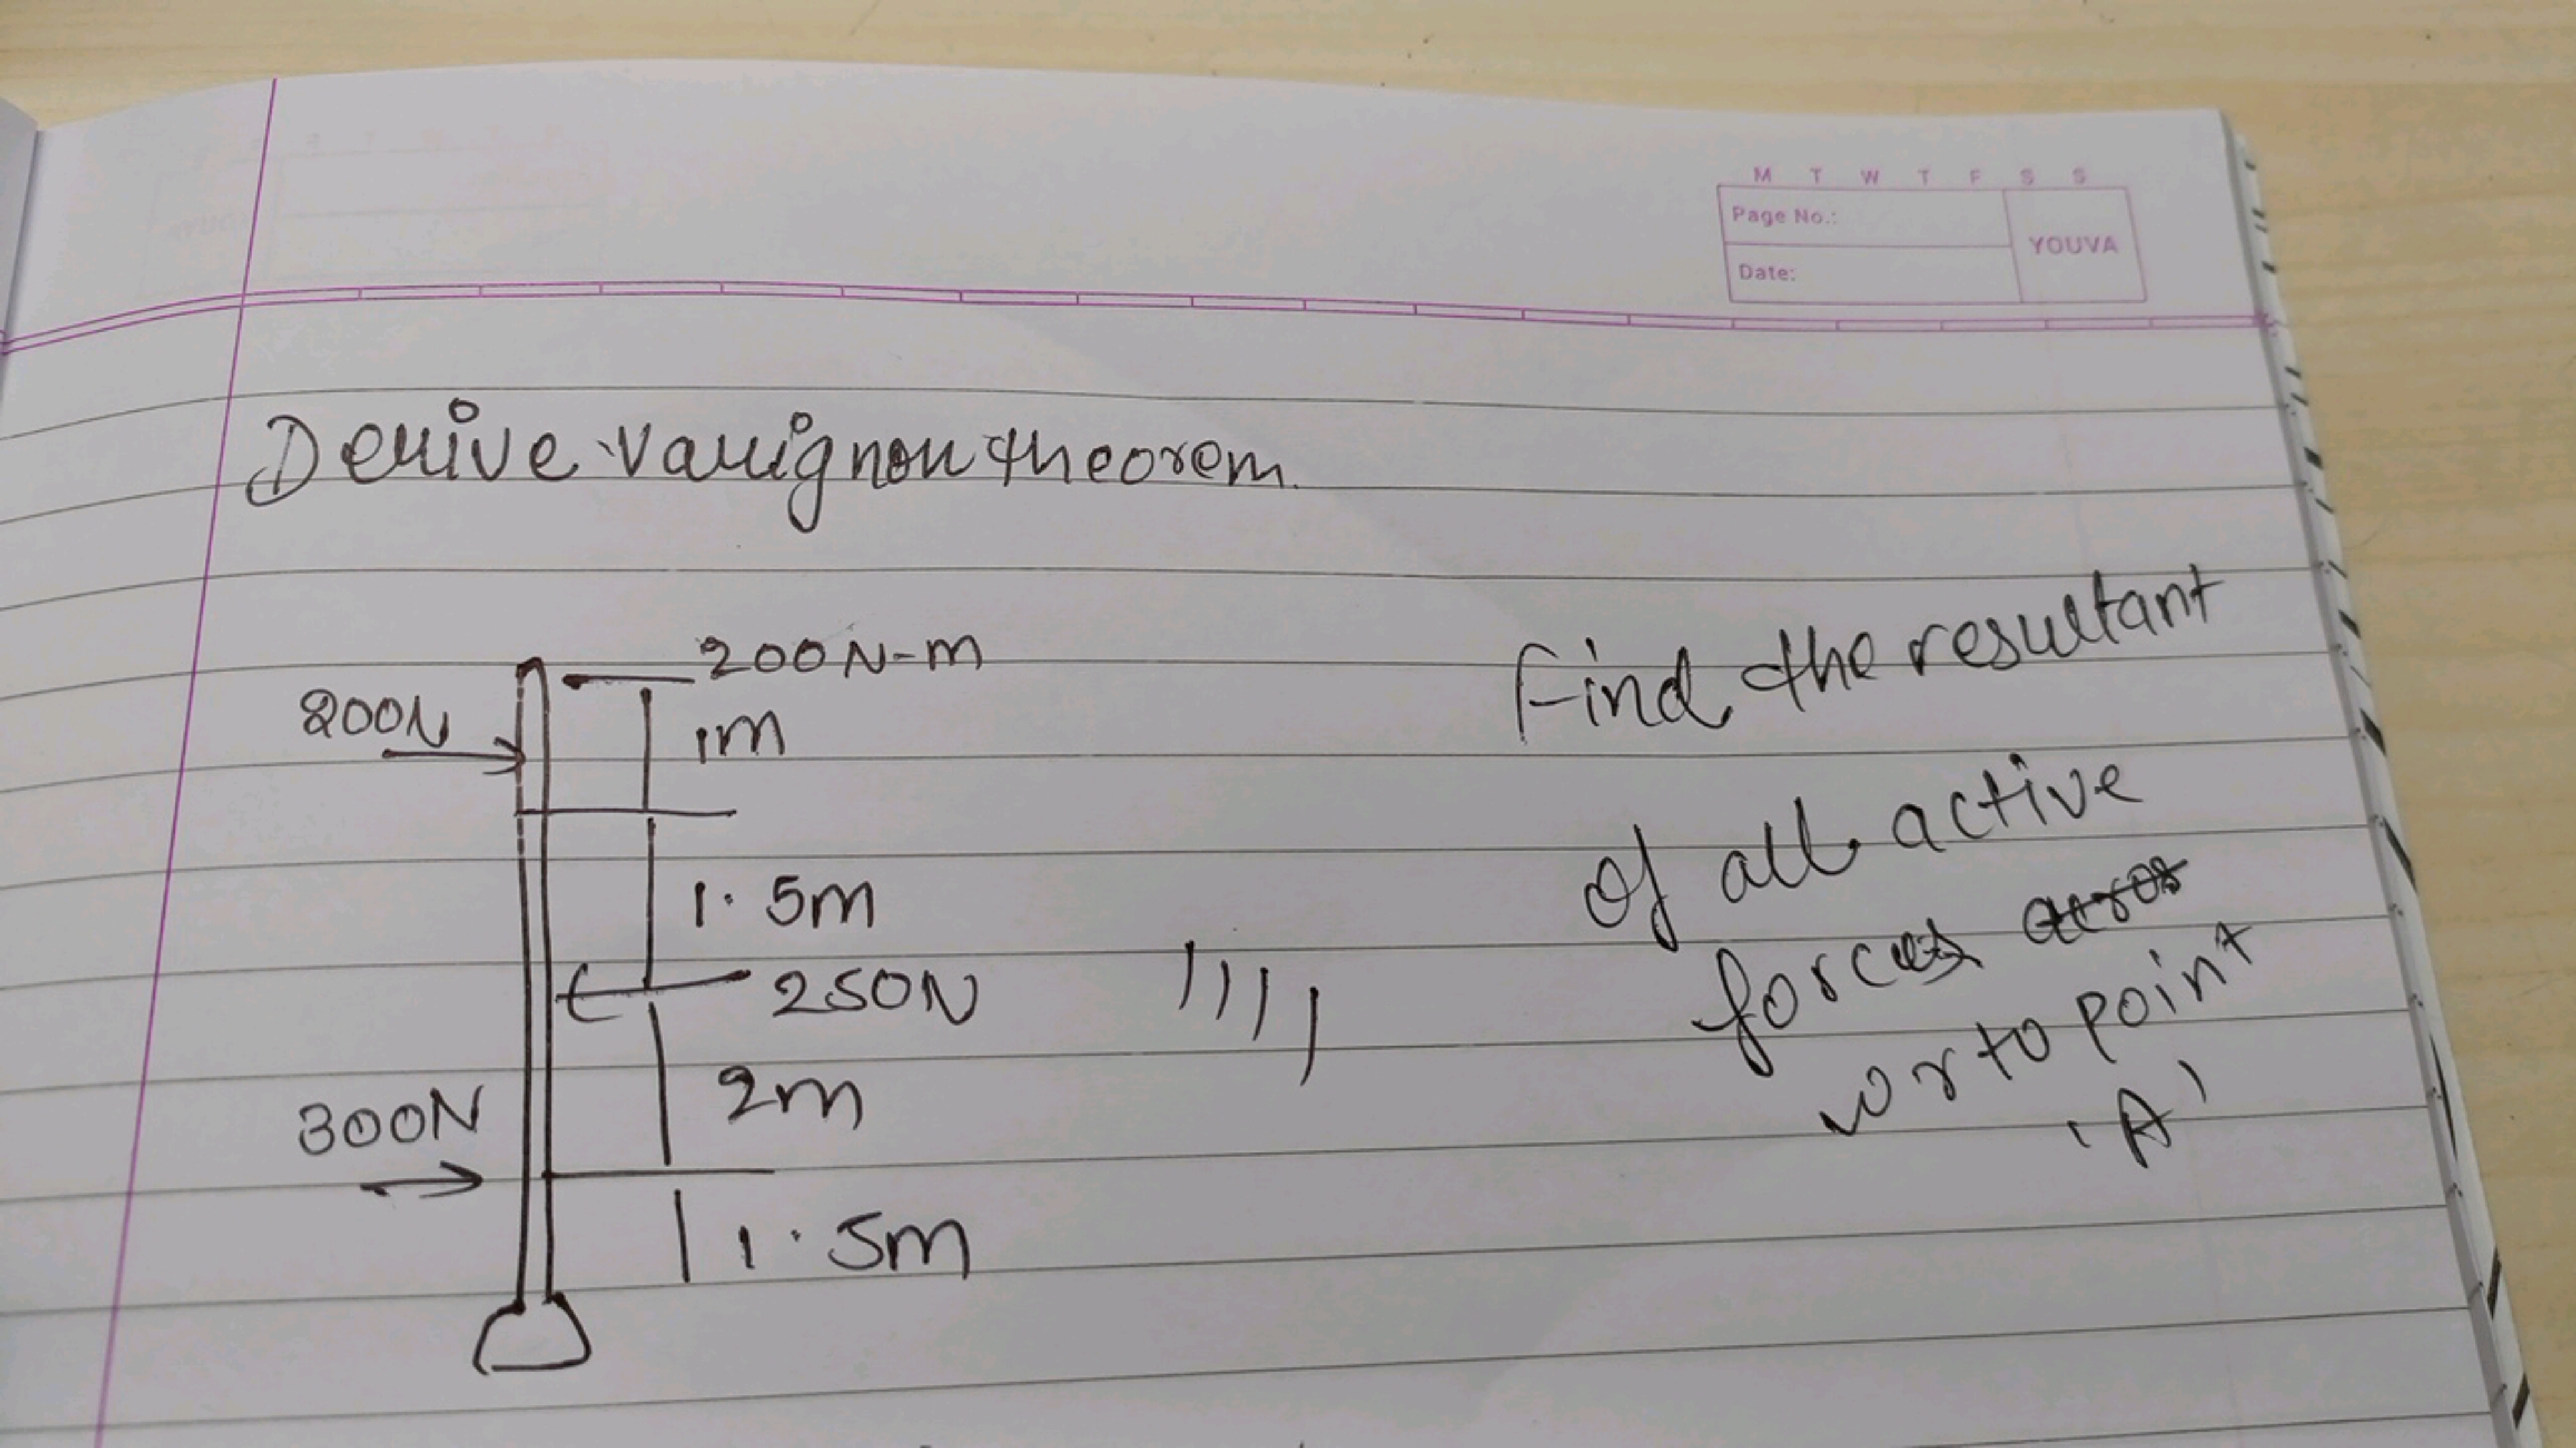 M T W T F S S
Page No.:
YOUVA
Date:
Derive varignon theorem.
200N-m
200N
1m
1.5m
250N
2m
300N
1.5m
Find the resultant
of all active
forces
wr to point
'A'